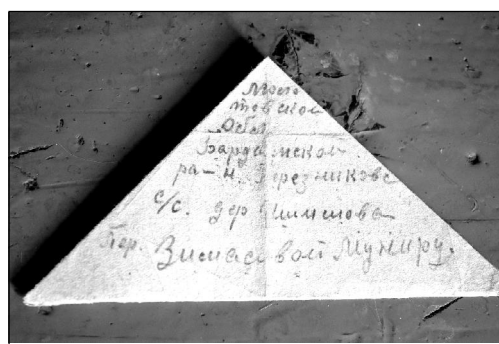 Моло
товской
Обл
Бардымской
ра-н. Березниковс
с/с. дер
Пер. Зимасовой Муниру.